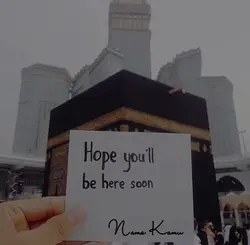 Hope you'll
be here soon
Nama Kamu